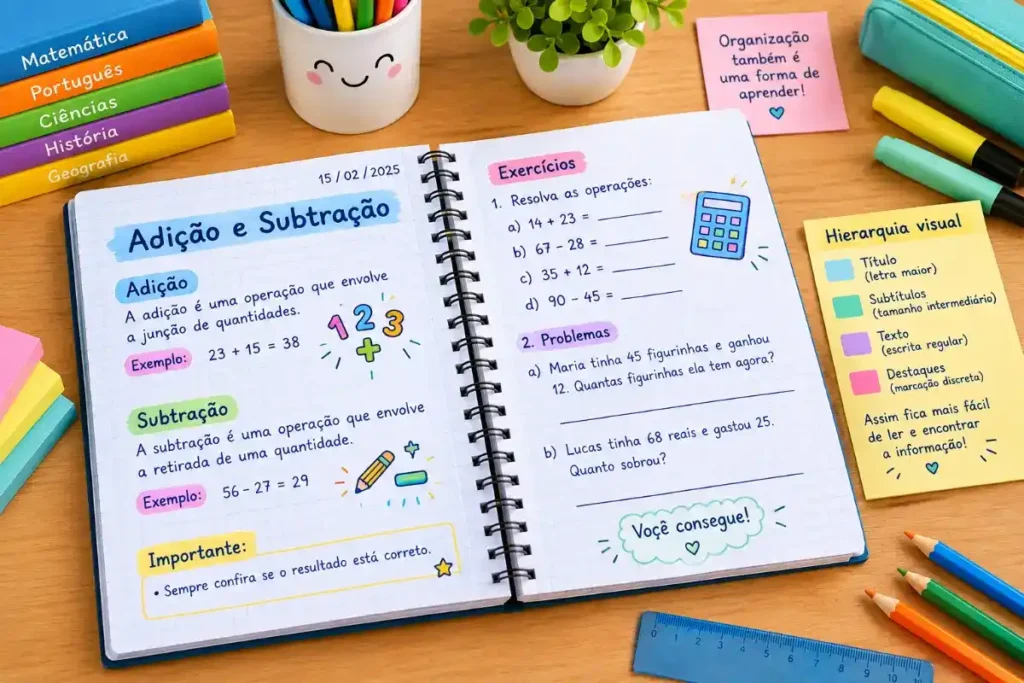 Matemática
Português
Ciências
História
Geografia
Organização
também é
uma forma de
aprender!
15 / 02 / 2025
Adição e Subtração
Adição
A adição é uma operação que envolve
a junção de quantidades.
Exemplo: 23 + 15 = 38
1 2 3
+
Subtração
A subtração é uma operação que envolve
a retirada de uma quantidade.
Exemplo: 56 - 27 = 29
Importante:
• Sempre confira se o resultado está correto.
Exercícios
1. Resolva as operações:
a) 14 + 23 = ________
b) 67 - 28 = ________
c) 35 + 12 = ________
d) 90 - 45 = ________
2. Problemas
a) Maria tinha 45 figurinhas e ganhou
12. Quantas figurinhas ela tem agora?
b) Lucas tinha 68 reais e gastou 25.
Quanto sobrou?
Voçê consegue!
Hierarquia visual
Título
(letra maior)
Subtítulos
(tamanho intermediário)
Texto
(escrita regular)
Destaques
(marcação discreta)
Assim fica mais fácil
de ler e encontrar
a informação!
0 1 2 3 4 5 6 7 8 9 10